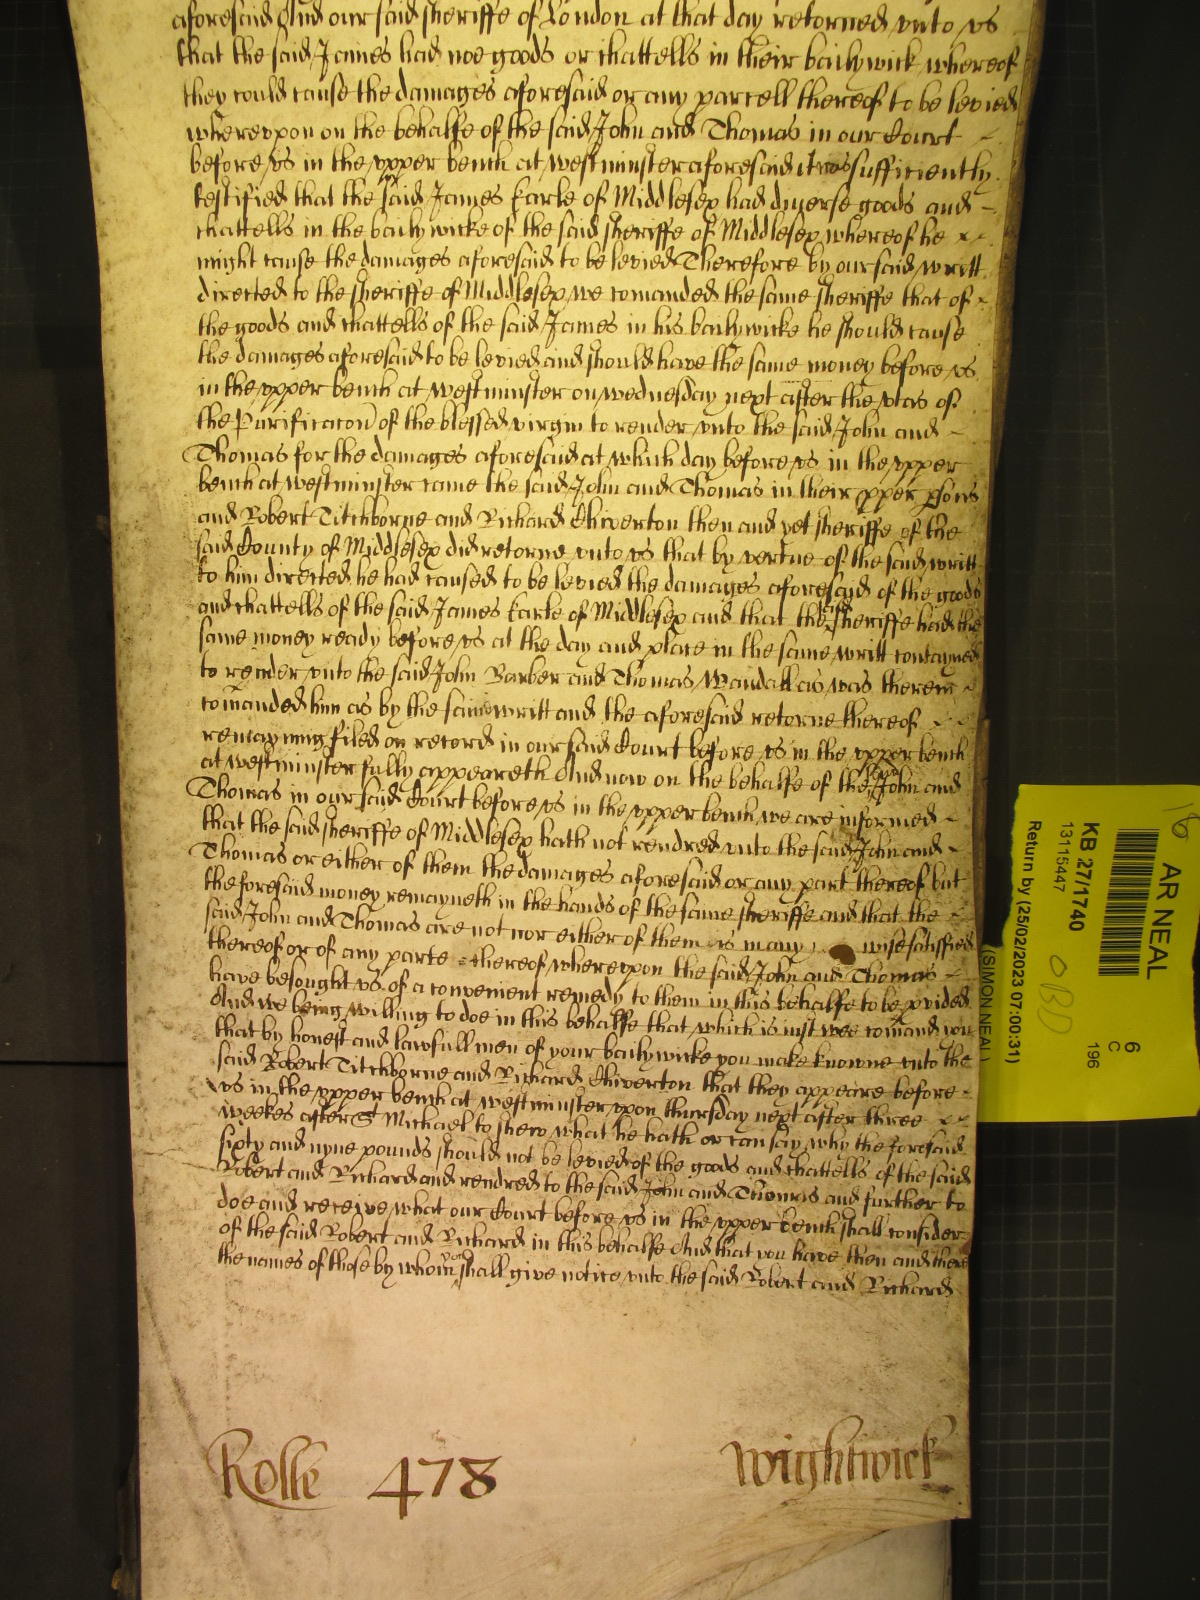 aforesaid And our said sheriffe of London at that day retorned vnto vs
that the said James had noe goods or chattells in their bailywick whereof
they could cause the damages aforesaid or any parcell thereof to be levied
wherevpon on the behalfe of the said John and Thomas in our Court
before vs in the vpper bench at westminster aforesaid it was sufficiently
testified that the said James Earle of Middlesex had diverse goods and
chattells in the bailywicke of the said sheriffe of Middlesex whereof he
might cause the damages aforesaid to be levied Therefore by our said writt
directed to the sheriffe of Middlesex we comanded the same sheriffe that of
the goods and chattells of the said James in his bailywicke he should cause
the damages aforesaid to be levied and should have the same money before vs
in the vpper bench at westminster on wednesday next after the vtas of
the Purificacon of the blessed virgin to render vnto the said John and
Thomas for the damages aforesaid at which day before vs in the vpper
bench at westminster came the said John and Thomas in their pper psons
and Robert Titchborne and Richard Chiverton then and yet sheriffe of the
said County of Middlesex did retorne vnto vs that by vertue of the said writt
to him directed he had caused to be levied the damages aforesaid of the goods
and chattells of the said James Earle of Middlesex and that the sheriffe had the
same money ready before vs at the day and place in the same writt contayned
to render vnto the said John Barber and Thomas Wandall as was therein
comanded him as by the same writt and the aforesaid retorne thereof
remayning filed on record in our said Court before vs in the vpper bench
at westminster fully appeareth And now on the behalfe of the said John and
Thomas in our said Court before vs in the vpper bench we are informed
that the said sheriffe of Middlesex hath not rendred vnto the said John and
Thomas or either of them the damages aforesaid or any part thereof but
the foresaid money remayneth in the hands of the same sheriffe and that the
said John and Thomas are not nor either of them is in any wise satisfied
thereof or of any parte thereof wherevpon the said John and Thomas
have besought vs of a convenient remedy to them in this behalfe to be pvided
And we being willing to doe in this behalfe that which is iust wee comand you
that by honest and lawfull men of your bailywicke you make knowne vnto the
said Robert Titchborne and Richard Chiverton that they appeare before
vs in the vpper bench at westminster vpon thursday next after three
weekes after St Michael to shew what he hath or can say why the foresaid
sixty and nyne pounds should not be levied of the goods and chattells of the said
Robert and Richard and rendred to the said John and Thomas and further to
doe and receive what our Court before vs in the vpper bench shall consider
of the said Robert and Richard in this behalfe And that you have then and there
the names of those by whom you shall give notice vnto the said Robert and Richard
Rolle 478 Wightwick
AR NEAL
KB 27/1740
13115447
Return by (25/02/2023 07:00:31)
(SIMON NEAL)
6
C
196